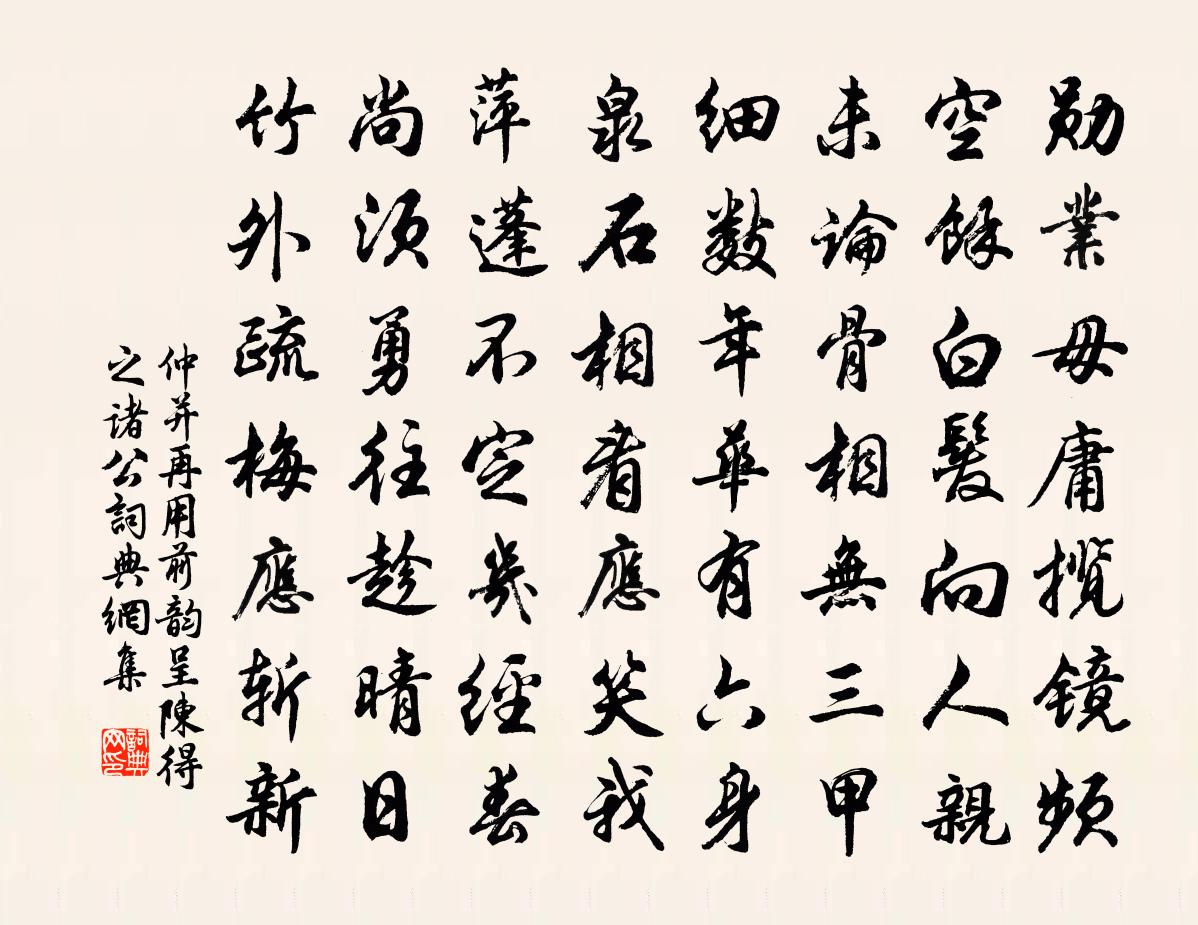 勋業毋庸揽镜频
空餘白髮向人親
未論骨相無三甲
細數年華有六身
泉石相看應笑我
萍蓬不定幾經春
尚須勇往趁晴日
竹外疏梅應斬新
仲并再用前韵呈陳得
之诸公詞典網集
詞典
网印